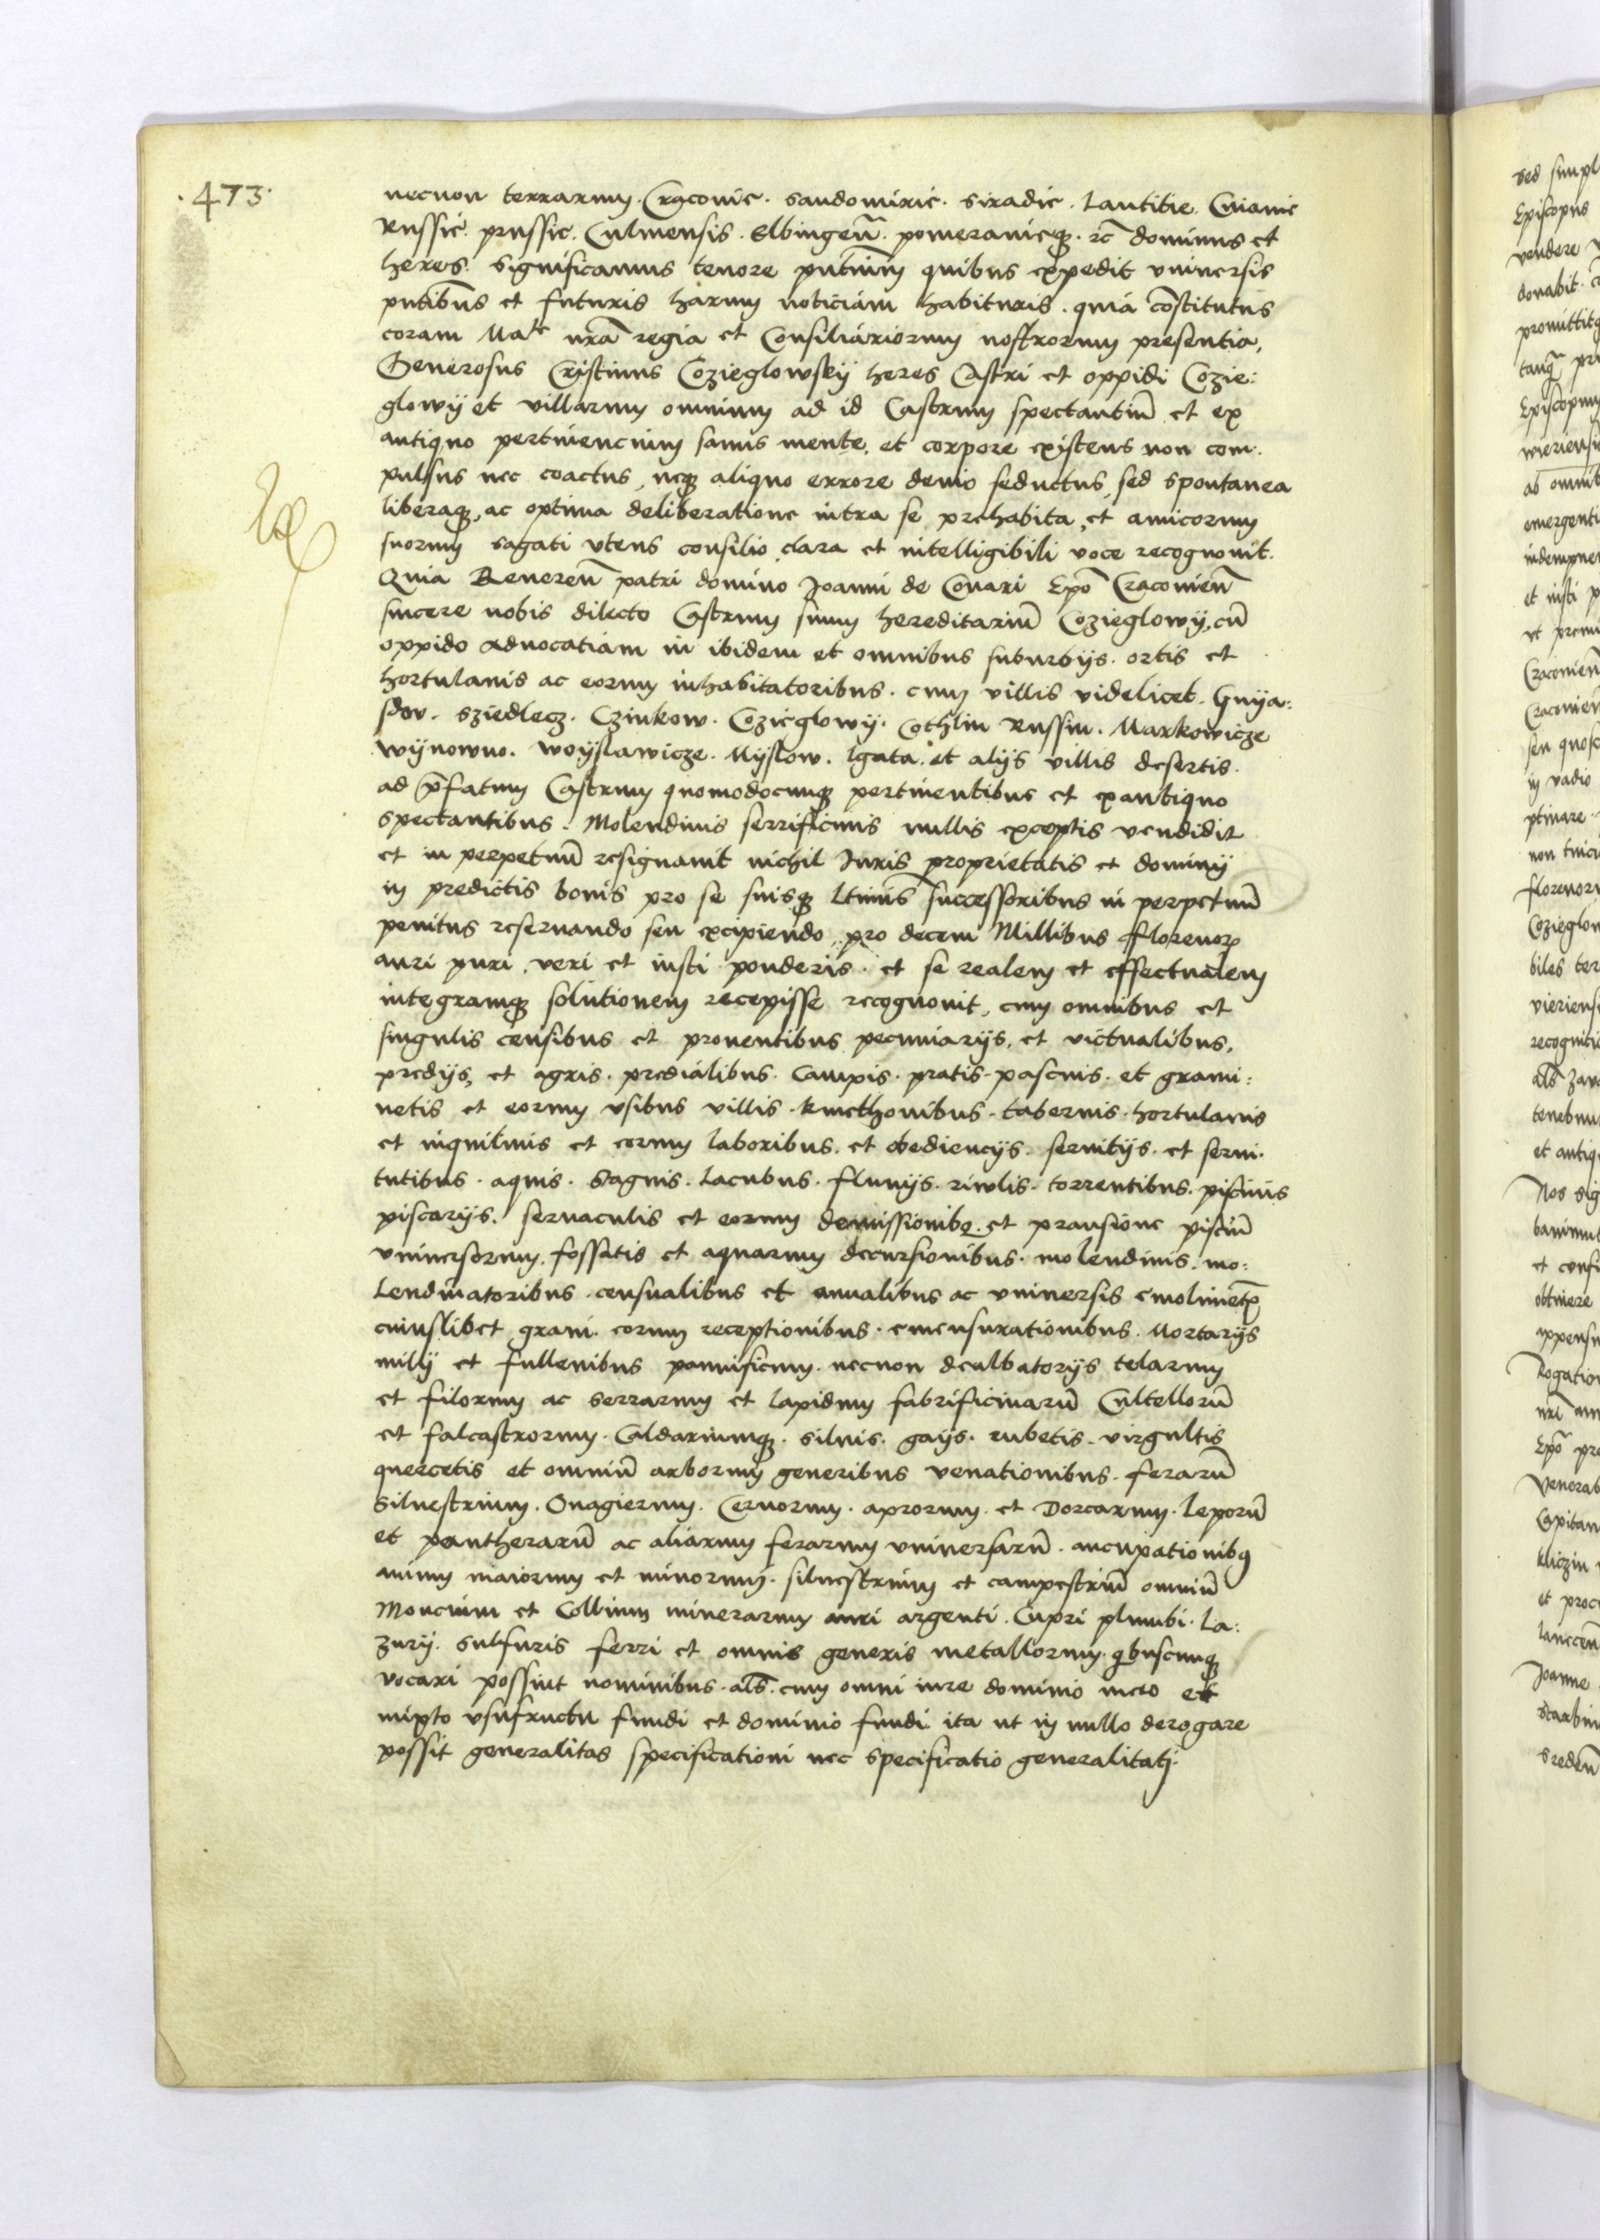 .473.
necnon terrarum. Cracovie. Sandomirie. Siradie. Lantitie. Cuiavie
Russie. prussie. Culmensis. Elbingeñ. pomeranieq3. rc̄ dominus et
heres. Significamus tenore pñtium quibus expedit universis
pñtibus et futuris harum noticiam habituris. quia cōstitutus
coram Mate nrā regia et Consiliariorum nostrorum presentia,
Generosus Cristinus Cozieglowskÿ heres Castri et oppidi Cozie:
glowÿ et villarum omnium ad id Castrum spectantiū et ex
antiquo pertinencium sanus mente, et corpore existens non com.
pulsus nec coactus, neq3 aliquo errore devio seductus, sed spontanea
liberaq3, ac optima deliberatione intra se prehabita, et amicorum
suorum sagati utens consilio clara et intelligibili voce recognovit.
Quia Reveren̄ patri domino Joanni de Conari Epō Cracovien̄
sincere nobis dilecto Castrum suum hereditariū Cozieglowÿ, cū
oppido advocatiam in ibidem et omnibus suburbÿs. ortis et
hortulanis ac eorum inhabitatoribus. cum villis videlicet. Gnÿa:
sdov. Sziedlecz. Czinkow. Cozieglowÿ. Cothlin Russin. Markowicze
wÿnowno. woÿslawicze. Mÿslow. lgata. et alÿs villis desertis.
ad p̄fatum Castrum quomodocumq3 pertinentibus et exantiquo
spectantibus. Molendinis ferrificinis nullis exceptis vendidit
et in perpetuū resignavit nichil Juris proprietatis et dominÿ
in predictis bonis pro se suisq3 ltimis successoribus in perpetuū
penitus reservando seu excipiendo, pro decem Millibus fflorenor
auri puri, veri et iusti ponderis. et se realem et effectualem
integramq3 solutionem recepisse recognovit, cum omnibus et
singulis censibus et proventibus pecuniarÿs, et victualibus,
predÿs, et agris. predialibus. Campis. pratis. pascuis. et grami:
netis et eorum usibus villis. kmethonibus. tabernis. hortulanis
et inquilinis et eorum laboribus. et obediencÿs. servitÿs. et servi.
tutibus. aquis. Stagnis. lacubus. fluvÿs. rivulis. torrentibus. piscinis
piscarÿs. servaculis et eorum demissionibq. et pransione pisciū
universorum. fossatis et aquarum decursionibus. molendinis. mo:
lendinatoribus. censualibus et annalibus ac universis emolimet
cuiuslibet grani. eorum receptionibus. emensurationibus. Mortarÿs
milÿ et fullenibus pannificum. necnon dealbatorÿs telarum
et filorum ac serrarum et lapidum fabrificinarū Cultellorū
et falcastrorum. Caldariumq3. silvis. gaÿs. rubetis. virgultis
quercetis et omniū arborum generibus venationibus. ferarū
Silvestrium. Onagierum. Cervorum. aprorum. et Dorcarum. leporū
et pantherarū ac aliarum ferarum universarū. aucupationibq
avium maiorum et minorum. silvestrium et campestriū omniū
Moncium et Collium minerarum auri argenti. Cupri plumbi. la:
zurÿ. Sulfuris ferri et omnis generis metallorum. qbuscumq3
vocari possint nominibus. als̄. cum omni iure dominio mero et
mixto usufructu fundi et dominio fundi ita ut in nullo derogare
possit generalitas specificationi nec specificatio generalitatj.